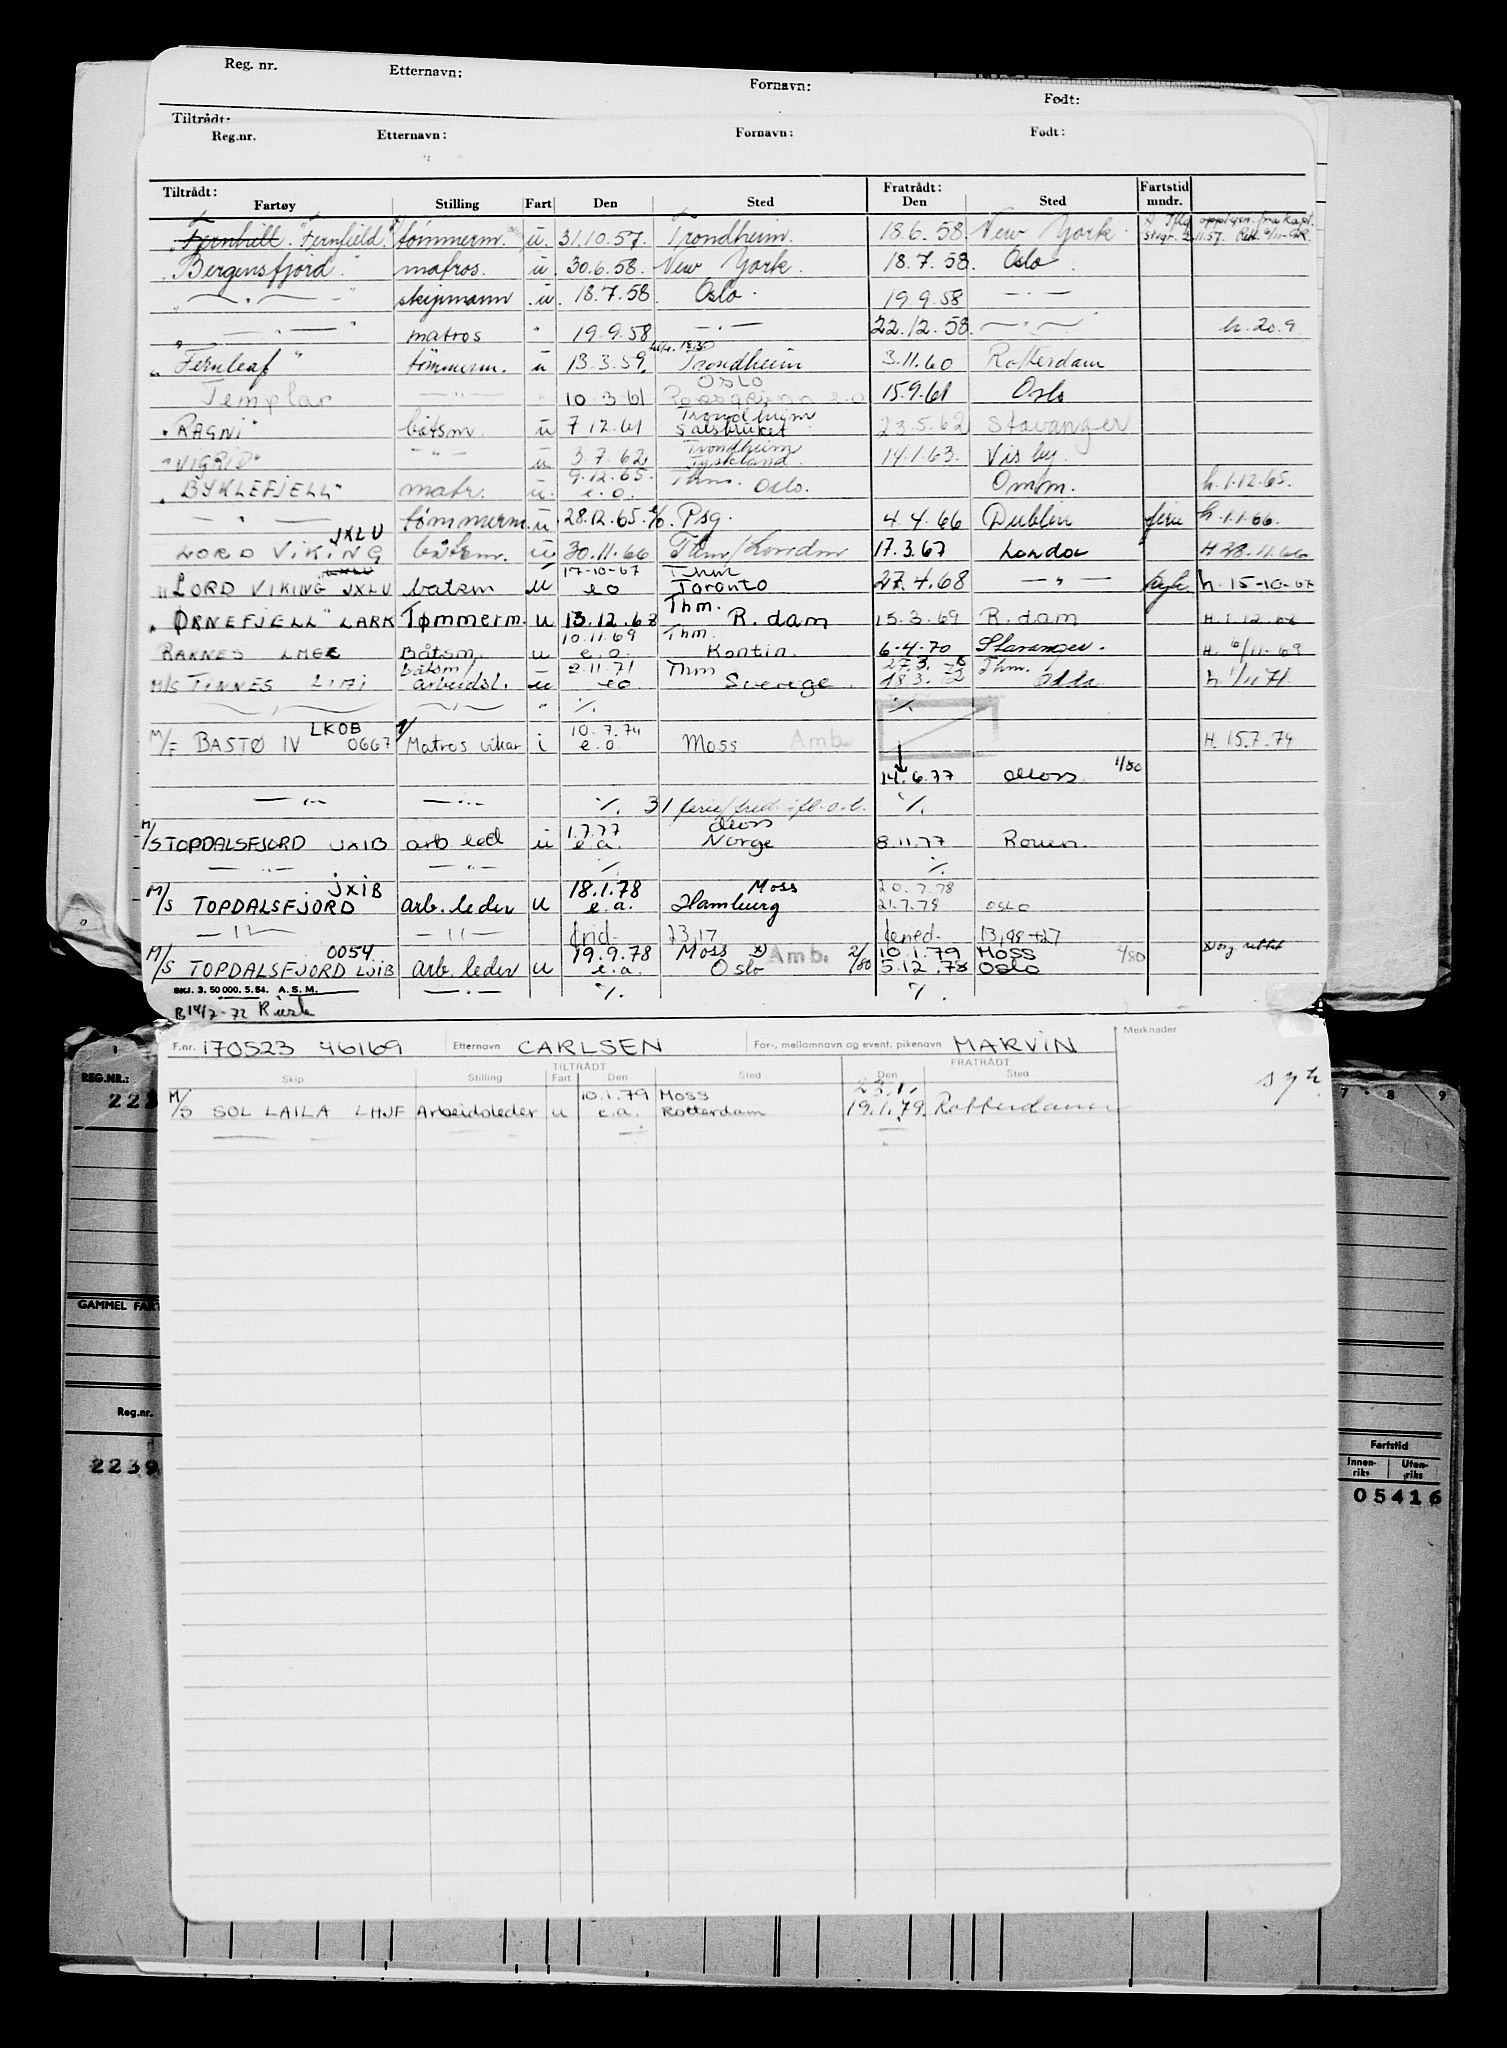 Reg. nr. Etternavn: Fornavn: Født:
Tiltrådt:
Reg.nr. Etternavn: Fornavn: Født:
Tiltrådt: Fratrådt: Fartstid
Fartøy Stilling Fart Den Sted Den Sted mndr.
"Fernhill" "Fernfield" tømmerm. u. 31.10.57. Trondheim. 18.6.58. New York.
"Bergensfjord" matros. u. 30.6.58. New York. 18.7.58. Oslo
— " — skipmann u. 18.7.58. Oslo. 19.9.58 — " —
— " — matros " 19.9.58 — " — 22.12.58. — " — h. 20.9
"Fernleaf" tømmerm. u 13.3.59. Trondheim 3.11.60 Rotterdam
Oslo
Templar — " — 10.3.61 15.9.61 Oslo
Trondheim
"RAGNI" båtsm. u 7.12.61 Salsbruket 23.5.62 Stavanger
Trondheim
"VIGRID" — " — u 3.7.62 Tyskland. 14.1.63. Visby.
9.12.65. Thm.
"BYKLEFJELL" matr. u. e.o. Oslo. Omm. h. 1.12.65.
— " — tømmerm. u. 28.12.65. e/o. Psg. 4.4.66 Dublin ferie h. 1.1.66.
JXLV
LORD VIKING båtsm. u 30.11.66 Thm/London 17.3.67 London H 28.11.66
17-10-67 Thm
"LORD VIKING JXLV båtsm u eo Toronto 27.4.68 — " — h. 15-10-67
Thm.
"ØRNEFJELL" LARK Tømmerm. u 13.12.68 R. dam 15.3.69 R. dam H. 1.12.68
10.11.69 Thm.
RAKNES LMEE Båtsm. u e.o. Kontin. 6-4-70 Stavanger. H. 6/11-69
båtsm/ 2.11.71 Thm 27.3. Thm.
M/S TINNES arbeidsl. u eo Sverige 18.3.72 Odda h 1/11 71
— " — — " — " ./. ./.
LKOB 10.7.74
M/F BASTØ IV 0667 Matros vikar i e.o. Moss Amb. H. 15.7.74
14.6.77 Moss 1/80
— " — — " — ./. 31 ./.
1.7.77 Moss
M/S TOPDALSFJORD JXIB arb led u e.a. Norge 8.11.77 Rouen.
— " — — " — ./. ./.
JXIB 18.1.78 Moss 20.7.78
M/S TOPDALSFJORD arb. leder u e.a. Hamburg 21.7.78 OSLO
— " — — " — 23,17 13,98+27
0054 19.9.78 Moss x) Amb. 2/80 10.1.79 Moss 4/80
M/S TOPDALSFJORD LJIB arb. leder u e.a. Oslo 5.12.78 OSLO
BKJ. 3. 50 000. 5. 54. A. S. M. — " — ./. ./.
B 14/7-72
F.nr. 170523 46169 Etternavn CARLSEN For-, mellomnavn og event. pikenavn MARVIN Merknader
TILTRÅDT FRATRÅDT
Skip Stilling Fart Den Sted Den Sted
10.1.79 Moss 23.1. syk
M/S SOL LAILA LHJF Arbeidsleder u e.a. Rotterdam 19.1.79. Rotterdam
REG.NR.:
GAMMEL
Reg.nr.
2239
1
7 8 9
Fartstid
Innen-riks Uten-riks
05416